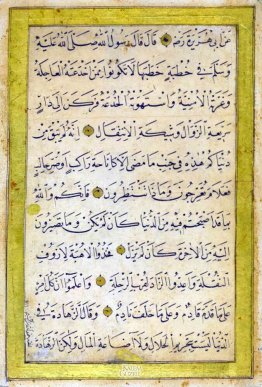 عن أبي هريرة رض قال قال رسول الله صلى الله عليه
وسلم في خطبة خطبها لا تكونوا ممن خدعته العاجلة
وغرته الأمنية واستهوته الخدعة فركن إلى دار
سريعة الزوال وشيكة الانتقال إنه لم يبق من
دنياكم هذه في جنب ما مضى إلا كإناخة راكب أو صر حالب
فعلام تعرجون وما ذا تنتظرون فإنكم والله
بما قد أصبحتم فيه من الدنيا كان لم يكن وما تصيرون
إليه من الآخرة كان لم يزل فخذوا الأهبة لأزوف
النقلة وأعدوا الزاد لقرب الرحلة واعلموا أن كل امرئ
على ما قدم قادم وعلى ما خلف نادم وقال الزهادة في
الدنيا ليست بتحريم الحلال ولا إضاعة المال ولكن الزهادة